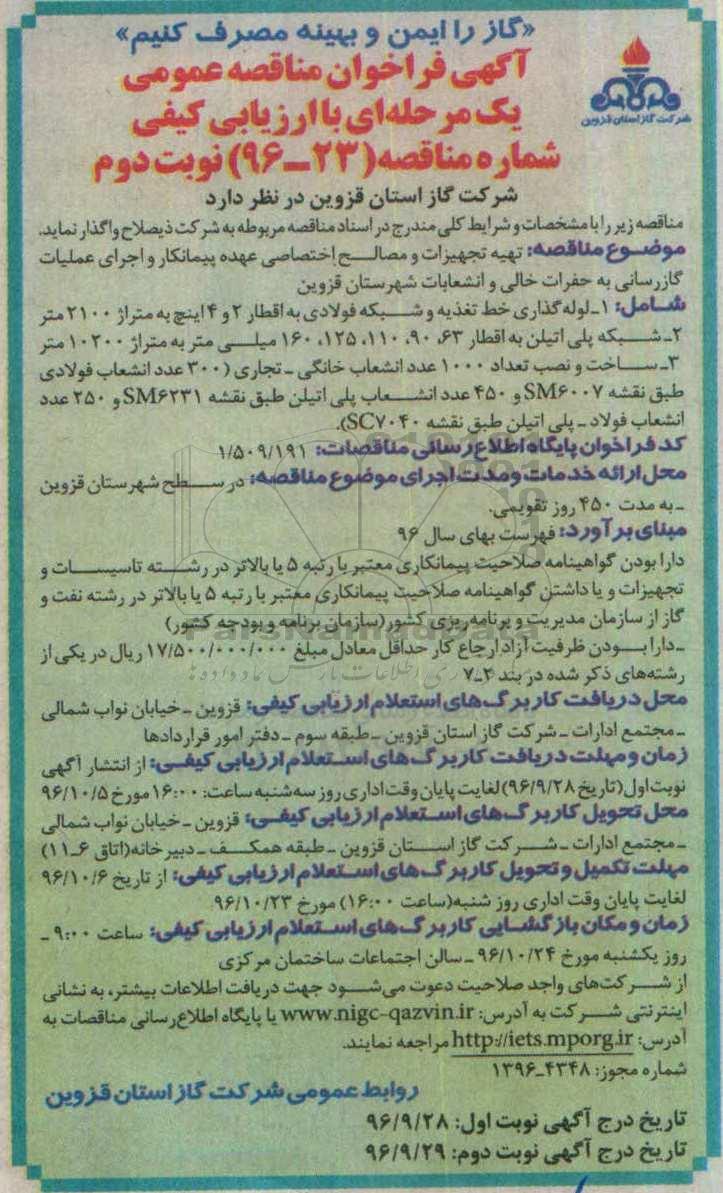 «گاز را ایمن و بهینه مصرف کنیم»
شرکت گاز استان قزوین
آگهی فراخوان مناقصه عمومی
یک مرحله‌ای با ارزیابی کیفی
شماره مناقصه (۲۳ـ۹۶) نوبت دوم
شرکت گاز استان قزوین در نظر دارد
مناقصه زیر را با مشخصات و شرایط کلی مندرج در اسناد مناقصه مربوطه به شرکت ذیصلاح واگذار نماید.
موضوع مناقصه: تهیه تجهیزات و مصالح اختصاصی عهده پیمانکار و اجرای عملیات
گازرسانی به حفرات خالی و انشعابات شهرستان قزوین
شامل: ۱ـ لوله‌گذاری خط تغذیه و شبکه فولادی به اقطار ۲ و ۴ اینچ به متراژ ۲۱۰۰ متر
۲ـ شبکه پلی اتیلن به اقطار ۶۳، ۹۰، ۱۱۰، ۱۲۵، ۱۶۰ میلی متر به متراژ ۱۰۲۰۰ متر
۳ـ ساخت و نصب تعداد ۱۰۰۰ عدد انشعاب خانگی ـ تجاری (۳۰۰ عدد انشعاب فولادی
طبق نقشه SM۶۰۰۷ و ۴۵۰ عدد انشعاب پلی اتیلن طبق نقشه SM۶۲۳۱ و ۲۵۰ عدد
انشعاب فولاد ـ پلی اتیلن طبق نقشه SC۷۰۴۰).
کد فراخوان پایگاه اطلاع رسانی مناقصات: ۱/۵۰۹/۱۹۱
محل ارائه خدمات و مدت اجرای موضوع مناقصه: در سطح شهرستان قزوین
ـ به مدت ۴۵۰ روز تقویمی.
مبنای برآورد: فهرست بهای سال ۹۶
دارا بودن گواهینامه صلاحیت پیمانکاری معتبر با رتبه ۵ یا بالاتر در رشته تاسیسات و
تجهیزات و یا داشتن گواهینامه صلاحیت پیمانکاری معتبر با رتبه ۵ یا بالاتر در رشته نفت و
گاز از سازمان مدیریت و برنامه‌ریزی کشور (سازمان برنامه و بودجه کشور)
ـ دارا بودن ظرفیت آزاد ارجاع کار حداقل معادل مبلغ ۱۷/۵۰۰/۰۰۰/۰۰۰ ریال در یکی از
رشته‌های ذکر شده در بند ۲ـ۷
محل دریافت کاربرگ‌های استعلام ارزیابی کیفی: قزوین ـ خیابان نواب شمالی
ـ مجتمع ادارات ـ شرکت گاز استان قزوین ـ طبقه سوم ـ دفتر امور قراردادها
زمان و مهلت دریافت کاربرگ‌های استعلام ارزیابی کیفی: از انتشار آگهی
نوبت اول (تاریخ ۹۶/۹/۲۸) لغایت پایان وقت اداری روز سه‌شنبه ساعت: ۱۶:۰۰ مورخ ۹۶/۱۰/۵
محل تحویل کاربرگ‌های استعلام ارزیابی کیفی: قزوین ـ خیابان نواب شمالی
ـ مجتمع ادارات ـ شرکت گاز استان قزوین ـ طبقه همکف ـ دبیرخانه (اتاق ۶ـ۱۱)
مهلت تکمیل و تحویل کاربرگ‌های استعلام ارزیابی کیفی: از تاریخ ۹۶/۱۰/۶
لغایت پایان وقت اداری روز شنبه (ساعت ۱۶:۰۰) مورخ ۹۶/۱۰/۲۳
زمان و مکان بازگشایی کاربرگ‌های استعلام ارزیابی کیفی: ساعت ۹:۰۰ ـ
روز یکشنبه مورخ ۹۶/۱۰/۲۴ ـ سالن اجتماعات ساختمان مرکزی
از شرکت‌های واجد صلاحیت دعوت می‌شود جهت دریافت اطلاعات بیشتر، به نشانی
اینترنتی شرکت به آدرس: www.nigc-qazvin.ir یا پایگاه اطلاع رسانی مناقصات به
آدرس: http://iets.mporg.ir مراجعه نمایند.
شماره مجوز: ۴۳۴۸ـ۱۳۹۶
روابط عمومی شرکت گاز استان قزوین
تاریخ درج آگهی نوبت اول: ۹۶/۹/۲۸
تاریخ درج آگهی نوبت دوم: ۹۶/۹/۲۹
ParsNamadData